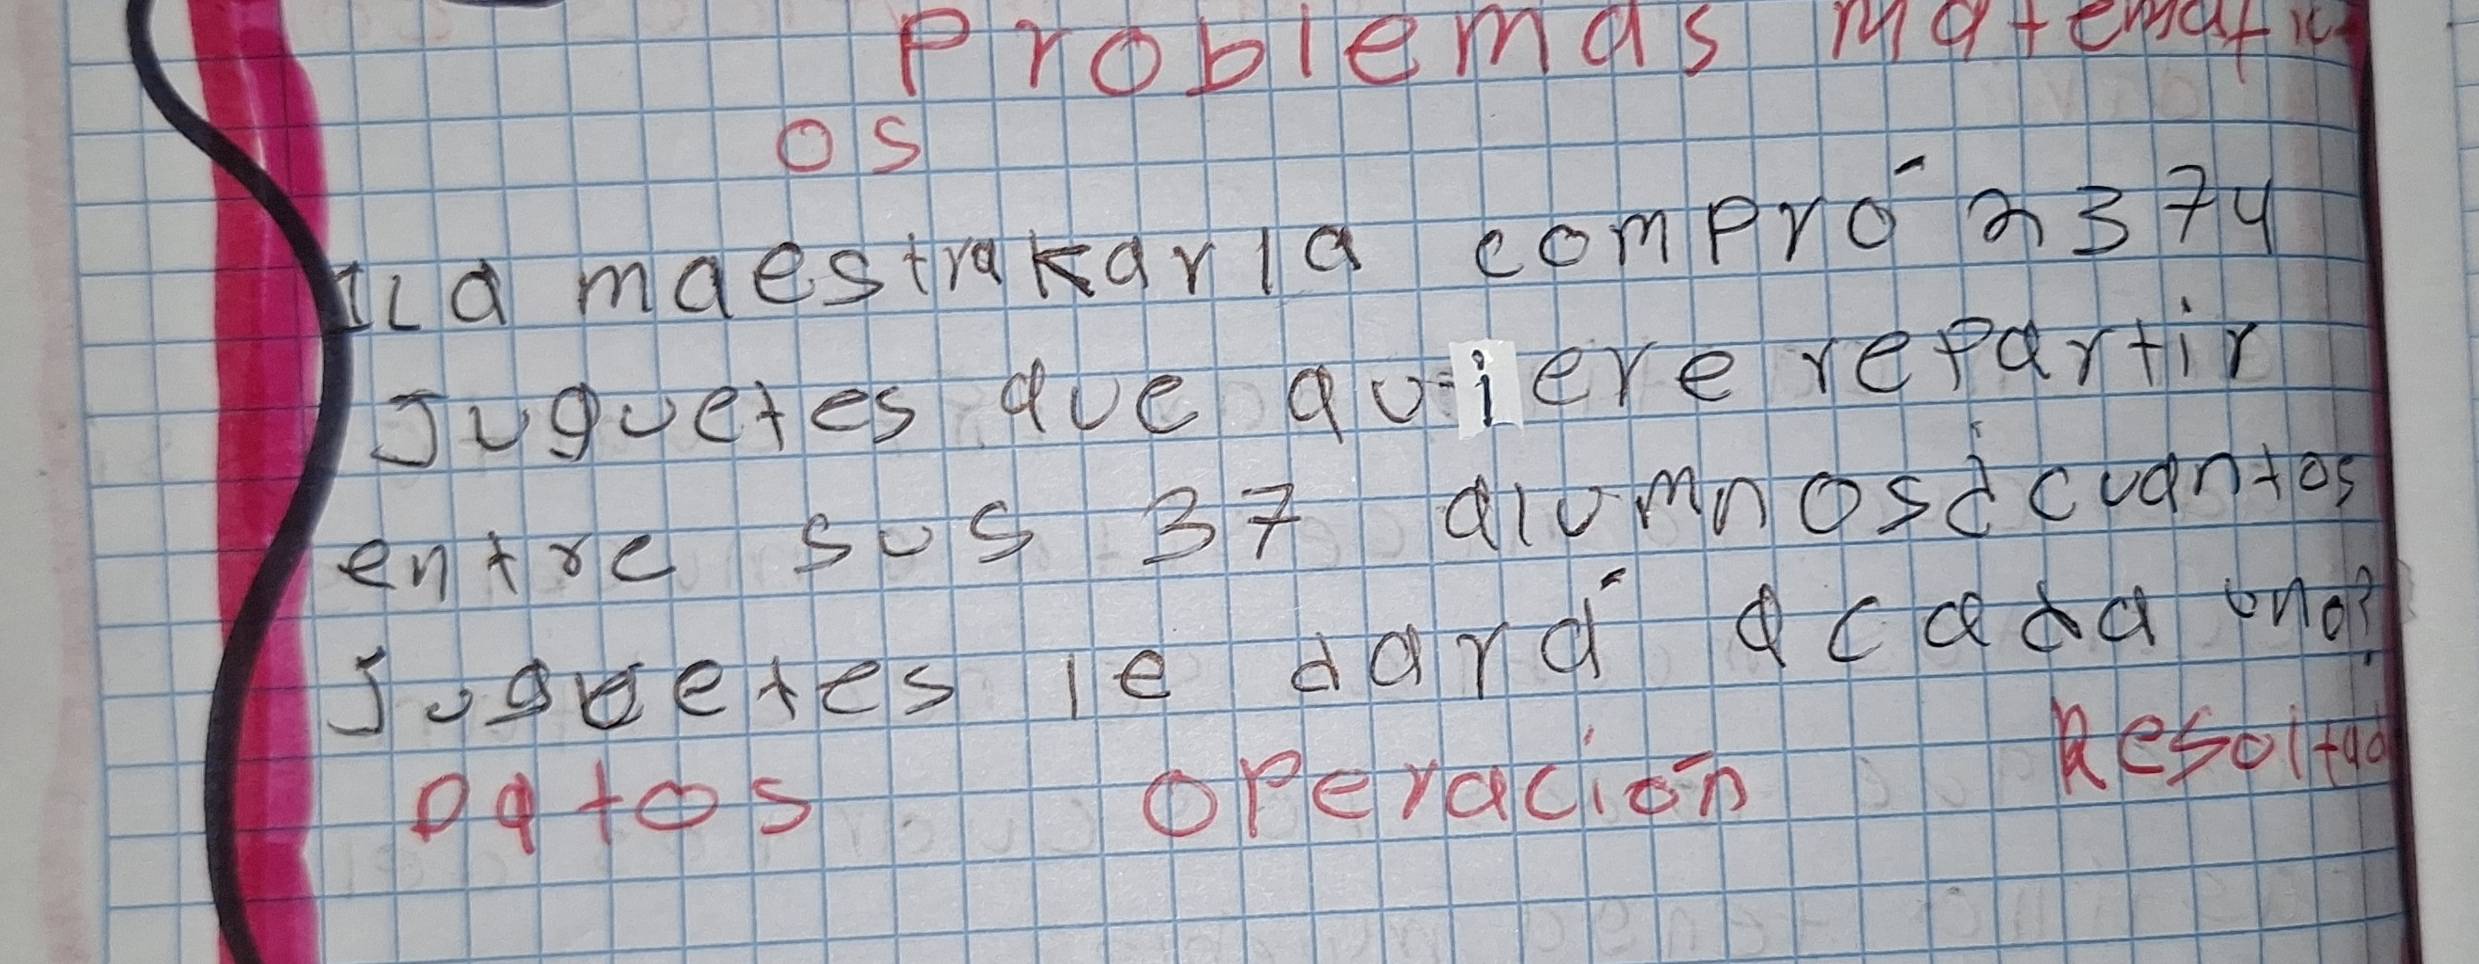 Problemas matematic
os
1La maestra karla compró 2374
Juguetes que quiere repartir
entre sus 37 alumnos¿cuantos
Juguetes le dará a cada uno?
Datos operación Resoltado